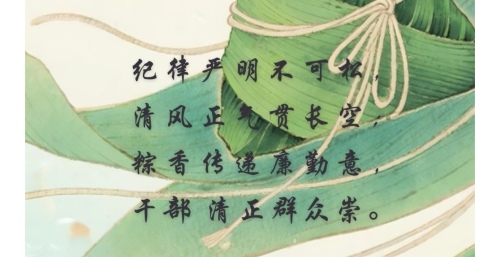 纪律严明不可松，
清风正气贯长空，
粽香传递廉勤意，
干部清正群众崇。